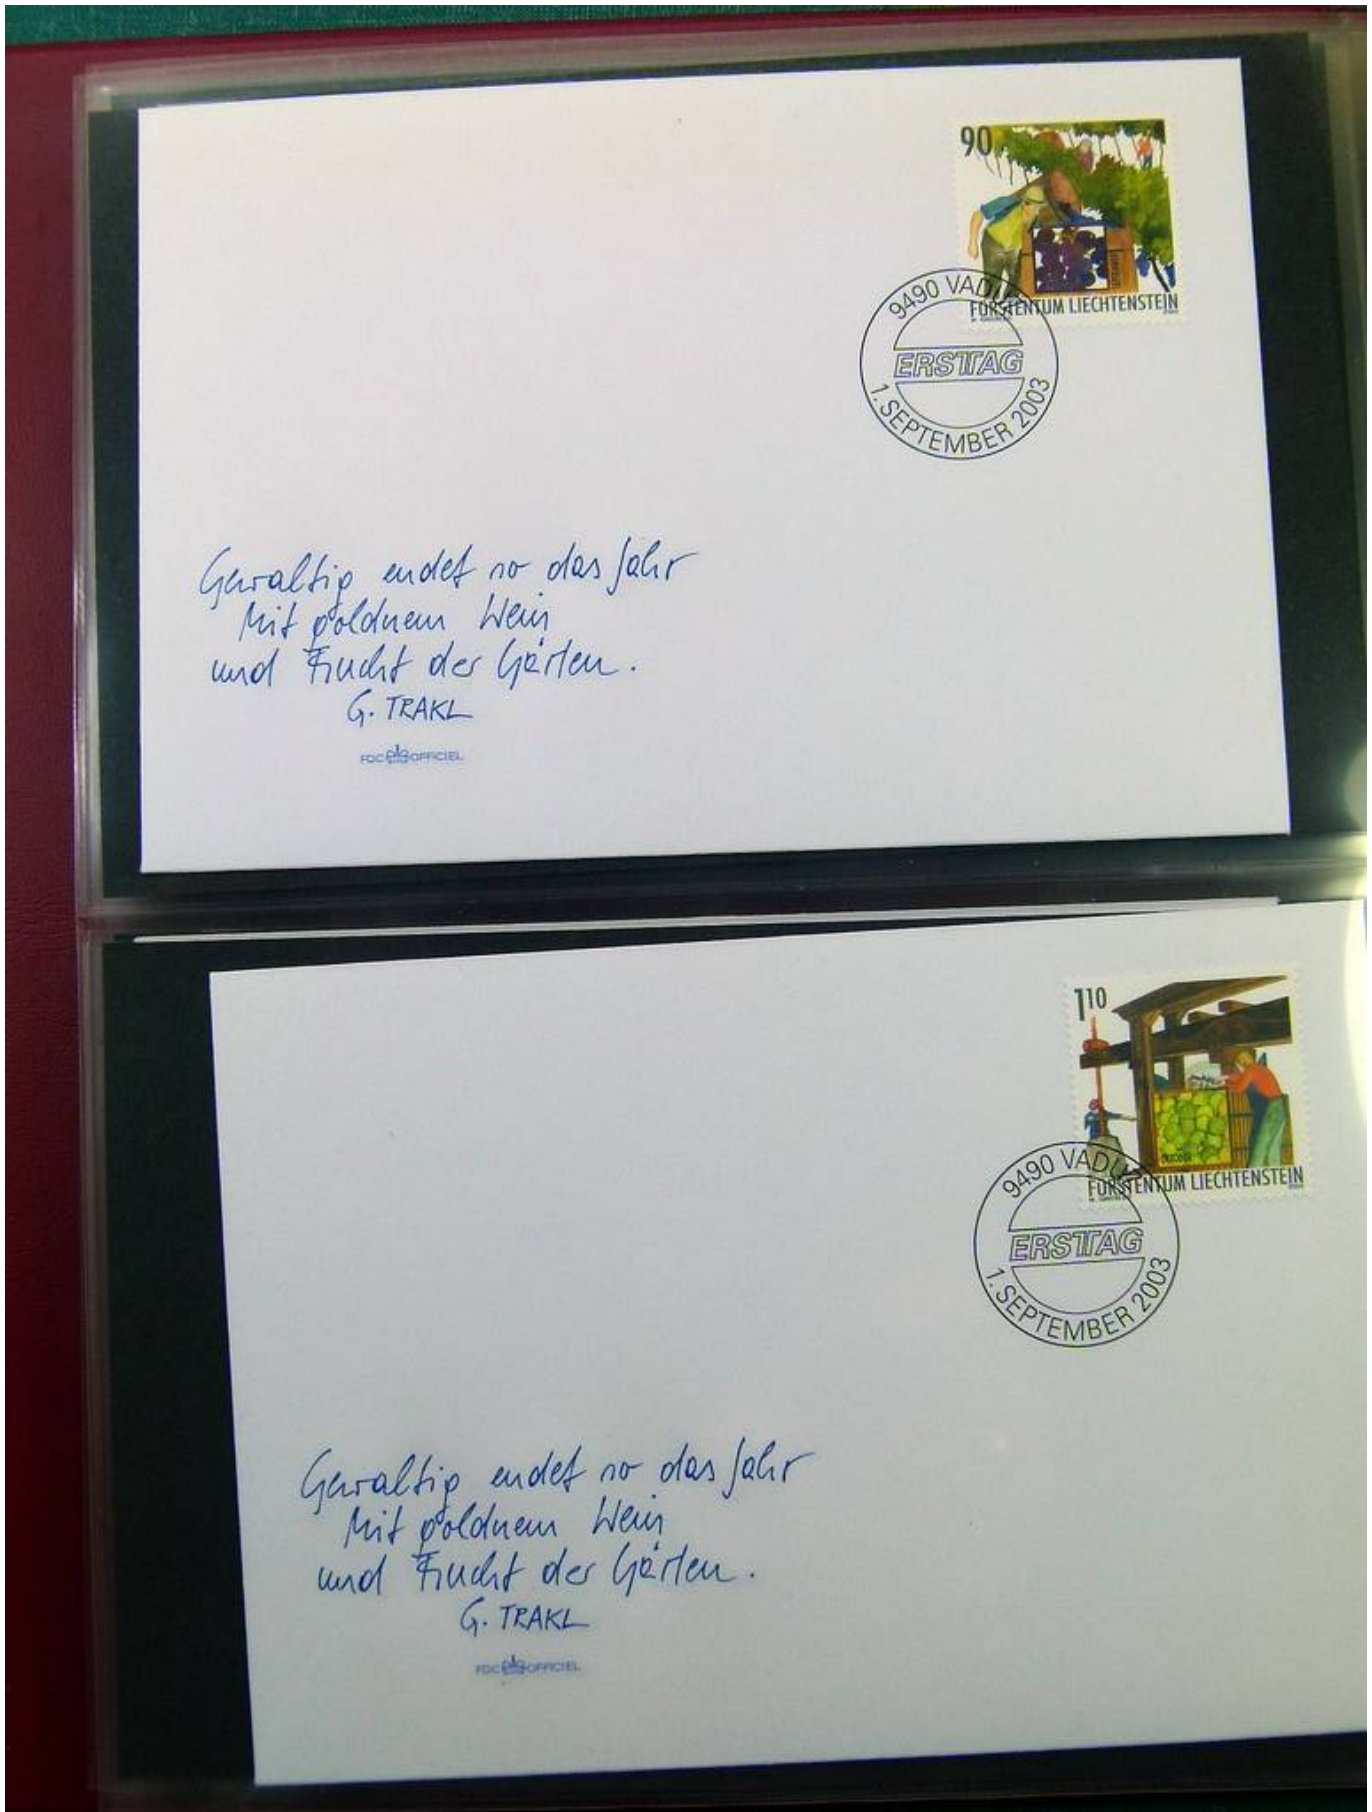 90
FÜRSTENTUM LIECHTENSTEIN
9490 VADUZ
ERSTTAG
1. SEPTEMBER 2003
Gewaltig endet so das Jahr
Mit goldnem Wein
und Frucht der Gärten.
G. TRAKL
FDC OFFICIEL
110
FÜRSTENTUM LIECHTENSTEIN
9490 VADUZ
ERSTTAG
1. SEPTEMBER 2003
Gewaltig endet so das Jahr
Mit goldnem Wein
und Frucht der Gärten.
G. TRAKL
FDC OFFICIEL